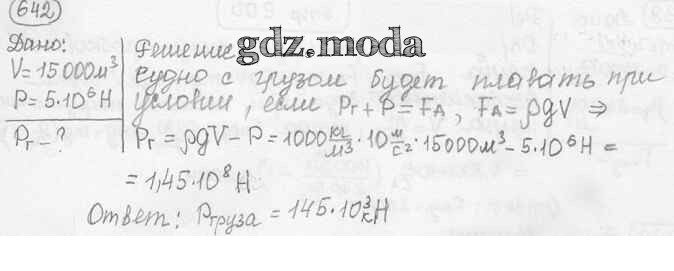 642
Дано:
V = 15000 м³
P = 5·10⁶ Н
Pг – ?
Решение
gdz.moda
Судно с грузом будет плавать при
условии, если Pг + P = FА, FА = ρgV ⇒
Pг = ρgV – P = 1000 кг/м³ · 10 м/с² · 15000 м³ – 5·10⁶ Н =
= 1,45·10⁸ Н
Ответ: Pгруза = 145·10³ кН